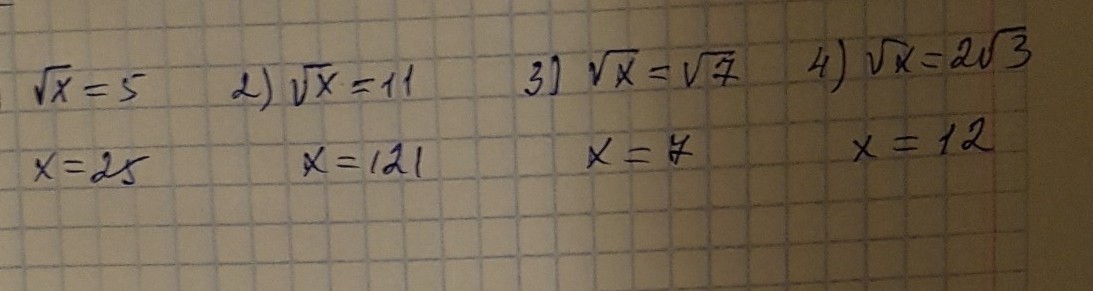 √x = 5 2) √x = 11 3) √x = √7 4) √x = 2√3
x = 25 x = 121 x = 7 x = 12